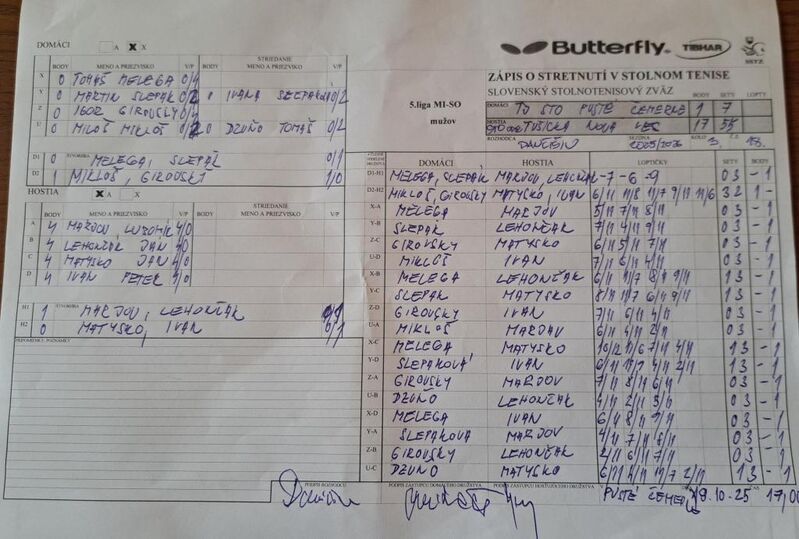 DOMÁCI A X X
Butterfly TIBHAR SSTZ
BODY MENO A PRIEZVISKO V/P STRIEDANIE BODY MENO A PRIEZVISKO V/P
X 0 TOMÁŠ MELEGA 0/4
Y 0 MARTIN SLEPAK 0/2 0 IVANA SLEPAKOVÁ 0/2
Z 0 IGOR GIROVSKÝ 0/4
U 0 MILOŠ MIKLOŠ 0/2 0 DZUŇO TOMÁŠ 0/2
D1 ŠTVORHRA 0 MELEGA, SLEPÁK 0/1
D2 1 MIKLOŠ, GIROVSKÝ 1/0
ZÁPIS O STRETNUTÍ V STOLNOM TENISE
SLOVENSKÝ STOLNOTENISOVÝ ZVÄZ
5.liga MI-SO
mužov
BODY SETY LOPTY
DOMÁCI TJ STO PUSTÉ ČEMERNÉ 1 7
HOSTIA TUŠICKÁ NOVÁ VES 17 55
ROZHODCA SEZÓNA 2025/2026 KOLO 3. Č.Z. 18.
HOSTIA X A X
BODY MENO A PRIEZVISKO V/P STRIEDANIE BODY MENO A PRIEZVISKO V/P
A 4 MARDOV LUBOMÍR 4/0
B 4 LEHONČAK JÁN 4/0
C 4 MATYSKO JÁN 4/0
D 4 IVAN PETER 4/0
H1 ŠTVORHRA 1 MARDOV, LEHONČAK
H2 0 MATYSKO, IVAN 0/1
PRIPOMIENKY, POZNÁMKY
DOMÁCI HOSTIA LOPTIČKY SETY BODY
D1-H1 MELEGA, SLEPAK MARDOV, LEHONČAK -7 -6 -9 03 -1
D2-H2 MIKLOŠ, GIROVSKÝ MATYSKO, IVAN 6/11 11/8 11/7 9/11 11/6 32 1-
X-A MELEGA MARDOV 5/11 7/11 8/11 03 -1
Y-B SLEPAK LEHONČAK 03 -1
Z-C GIROVSKY MATYSKO 6/11 5/11 7/11 03 -1
U-D MIKLOŠ IVAN 7/11 6/11 4/11 03 -1
X-B MELEGA LEHONČAK 6/11 11/7 8/11 9/11 13 -1
Y-C SLEPAK MATYSKO 8/11 11/7 6/11 9/11 13 -1
Z-D GIROVSKY IVAN 7/11 6/11 4/11 03 -1
U-A MIKLOŠ MARDAV 6/11 4/11 2/11 03 -1
X-C MELEGA MATYSKO 10/12 11/6 7/11 4/11 13 -1
Y-D SLEPAKOVÁ IVAN 6/11 11/7 4/11 2/11 13 -1
Z-A GIROVSKY MARDOV 7/11 8/11 6/11 03 -1
U-B DZUŇO LEHONČAK 4/11 2/11 5/11 03 -1
X-D MELEGA IVAN 6/11 8/11 9/11 03 -1
Y-A SLEPAKOVA MARDOV 4/11 7/11 8/11 03 -1
Z-B GIROVSKY LEHONČAK 2/11 6/11 7/11 03 -1
U-C DZUŇO MATYSKO 6/11 4/11 11/7 2/11 13 -1
PODPIS ROZHODCU PODPIS ZÁSTUPCU DOMÁCEHO DRUŽSTVA PODPIS ZÁSTUPCU HOSŤUJÚCEHO DRUŽSTVA
PUSTÉ ČEMERNÉ 19.10.25 17,00